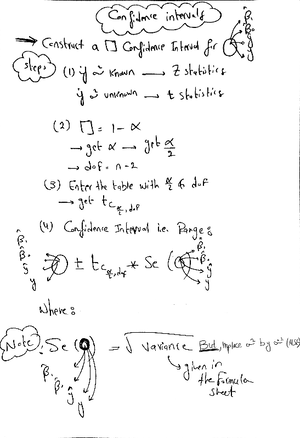 Confidence intervals
→ Construct a □ Confidence Interval for
Steps
(1) if σ² known → Z statistics
if σ² unknown → t statistics
(2) □ = 1 - α
→ get α → get α/2
→ dof = n-2
(3) Enter the table with α/2 & dof
→ get t c α/2, dof
(4) Confidence Interval i.e. Range:
β̂₁
β̂₀
ŷ
y
± t c α/2, dof * Se (
β̂₁
β̂₀
ŷ
y
Where:
Note: Se ( ) = √variance But, replace σ² by
β̂₁
β̂₀
ŷ
y
given in
the formula
sheet